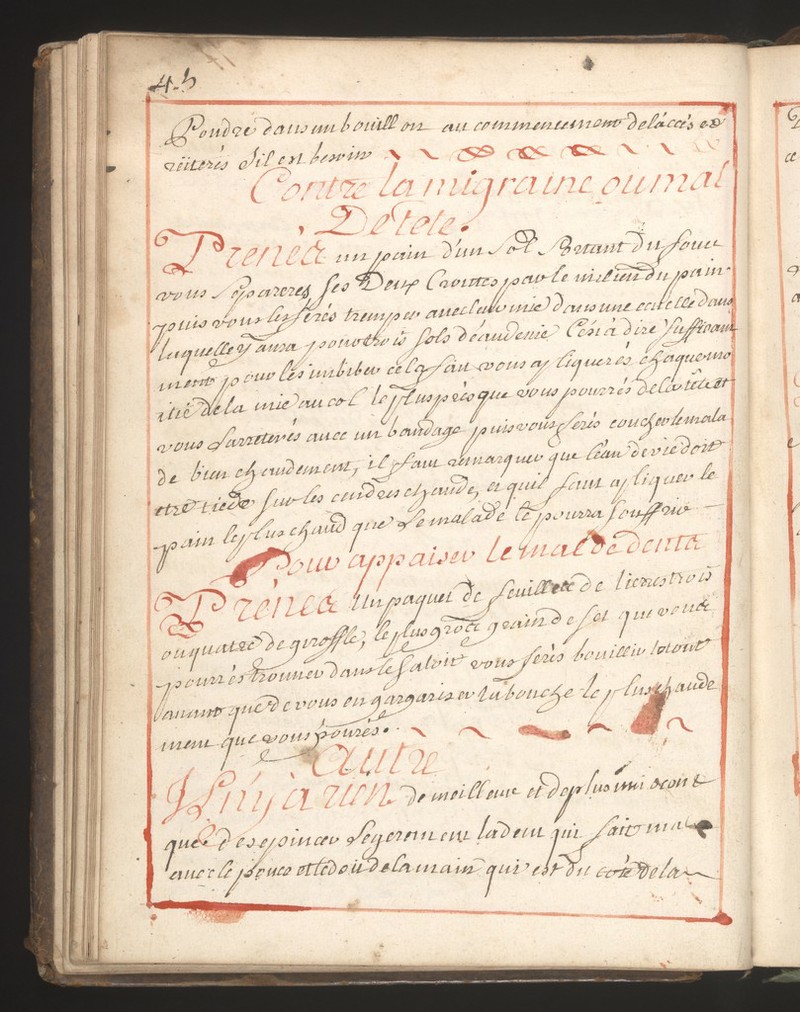 45
Poudre dans un bouillon au commencement de láccés et
réiterés s'il est besoin
Contre la migraine ou mal
De tete.
Prenéz un pain d'un sol sortant du four
vous separeres ses Deux Croutes par le milieu du pain
puis vous les ferés tremper avec leur mie dans une ecuelle dans
laquelle y aura pour trois sols déaudevie Cést à dire suffisam
ment pour les imbiber cela fait vous apliquerés chaque mo
itié de la mie au col le plus près que vous pourrés de la tête et
vous l'arreterés avec un bandage puis vous ferés coucher le mala
de bien chaudement, il faut remarquer que l'eau de vie doit
etre tiede sur les cendres chaude, et quil faut apliquer le
pain le plus chaud que le malade le pourra souffrir
Pour appaiser le mal de dents
Prénez un paquet de feuilles de lierre trois
ou quatre de giroffle, le plus gros grain de sel que vous
pourrés trouver dans le saloir vous ferés bouillir le tout
avant que de vous en gargariser la bouche le plus chaude
ment que vous pourés.
autre
Il n'y a rien de meilleur et de plus
que de se pincer legerement la dent qui fait mal
avec le pouce et le doit de la main qui est du coté de la